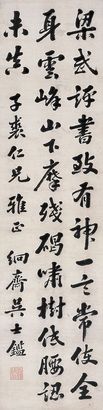 梁武評書致有神一言常使全
身雲峰山下摩殘碣嘯樹低腰認
未真 子裘仁兄雅正 絅齋吳士鑑